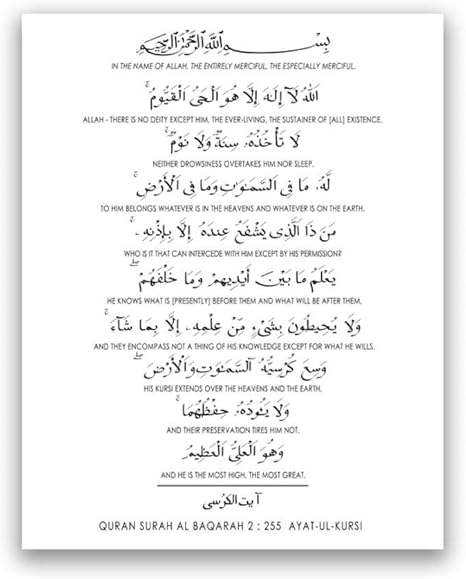 بِسْمِ اللَّهِ الرَّحْمَٰنِ الرَّحِيمِ
IN THE NAME OF ALLAH, THE ENTIRELY MERCIFUL, THE ESPECIALLY MERCIFUL.
اللَّهُ لَآ إِلَٰهَ إِلَّا هُوَ الْحَيُّ الْقَيُّومُ ۚ
ALLAH - THERE IS NO DEITY EXCEPT HIM, THE EVER-LIVING, THE SUSTAINER OF [ALL] EXISTENCE.
لَا تَأْخُذُهُۥ سِنَةٌ وَلَا نَوْمٌ ۚ
NEITHER DROWSINESS OVERTAKES HIM NOR SLEEP.
لَّهُۥ مَا فِى السَّمَٰوَٰتِ وَمَا فِى الْأَرْضِ ۗ
TO HIM BELONGS WHATEVER IS IN THE HEAVENS AND WHATEVER IS ON THE EARTH.
مَن ذَا الَّذِى يَشْفَعُ عِندَهُۥٓ إِلَّا بِإِذْنِهِۦ ۚ
WHO IS IT THAT CAN INTERCEDE WITH HIM EXCEPT BY HIS PERMISSION?
يَعْلَمُ مَا بَيْنَ أَيْدِيهِمْ وَمَا خَلْفَهُمْ ۖ
HE KNOWS WHAT IS [PRESENTLY] BEFORE THEM AND WHAT WILL BE AFTER THEM,
وَلَا يُحِيطُونَ بِشَىْءٍ مِّنْ عِلْمِهِۦٓ إِلَّا بِمَا شَآءَ ۚ
AND THEY ENCOMPASS NOT A THING OF HIS KNOWLEDGE EXCEPT FOR WHAT HE WILLS.
وَسِعَ كُرْسِيُّهُ السَّمَٰوَٰتِ وَالْأَرْضَ ۖ
HIS KURSI EXTENDS OVER THE HEAVENS AND THE EARTH.
وَلَا يَـُٔودُهُۥ حِفْظُهُمَا ۚ
AND THEIR PRESERVATION TIRES HIM NOT.
وَهُوَ الْعَلِىُّ الْعَظِيمُ
AND HE IS THE MOST HIGH, THE MOST GREAT.
آیت الکرسی
QURAN SURAH AL BAQARAH 2 : 255 AYAT-UL-KURSI